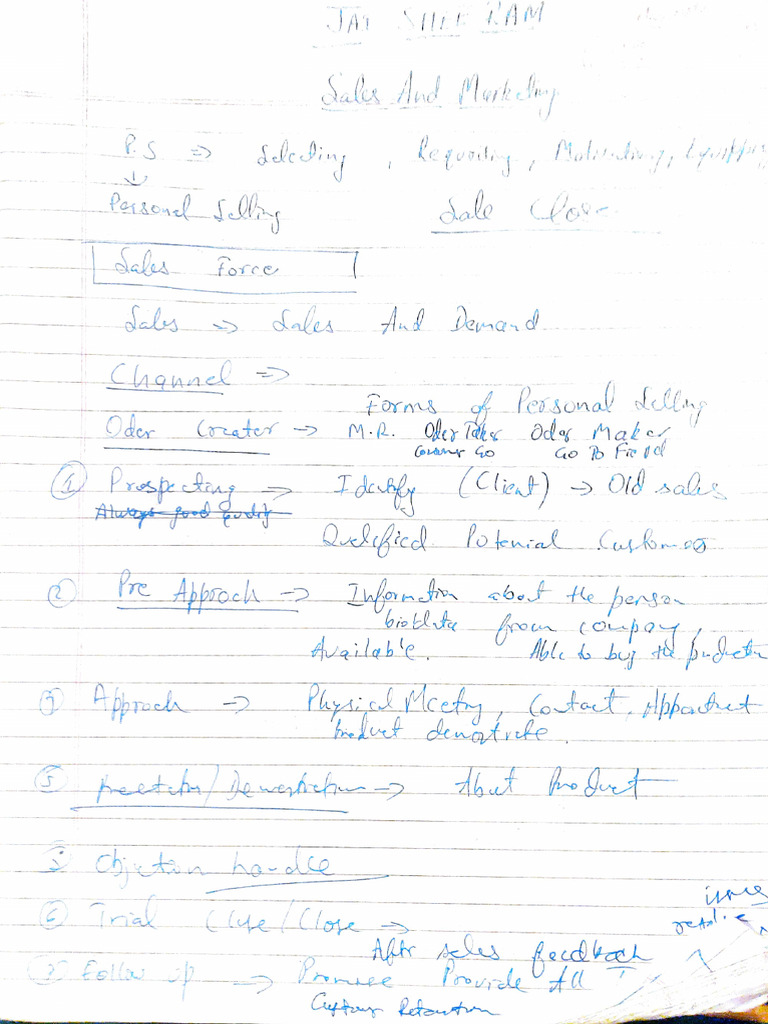 JAI SHEE RAM
Sales And Marketing
P.S => Selecting , Requoiting, Motivationg, Equipping
↓
Personal Selling Sale Close
Sales Force
Sales => Sales And Demand
Channel =>
Forms of Personal Selling
Oder Creater -> M.R. Oder Taker Oder Maker
Go To Field
① Prospecting -> Identify (Client) -> Old sales
Always good quality
Qualified Potenial Customer
② Pre Approch -> Information about the person
biodata from company,
Available. Able to buy the production
Approch -> Physical Meeting, Contact,
Product demostrate.
⑤ / Demostration -> About Product
Objection handle
⑥ Trial Close/Close ->
issues
resolve
After sales feedback
Follow up -> Promise Provide All
Customer Retention